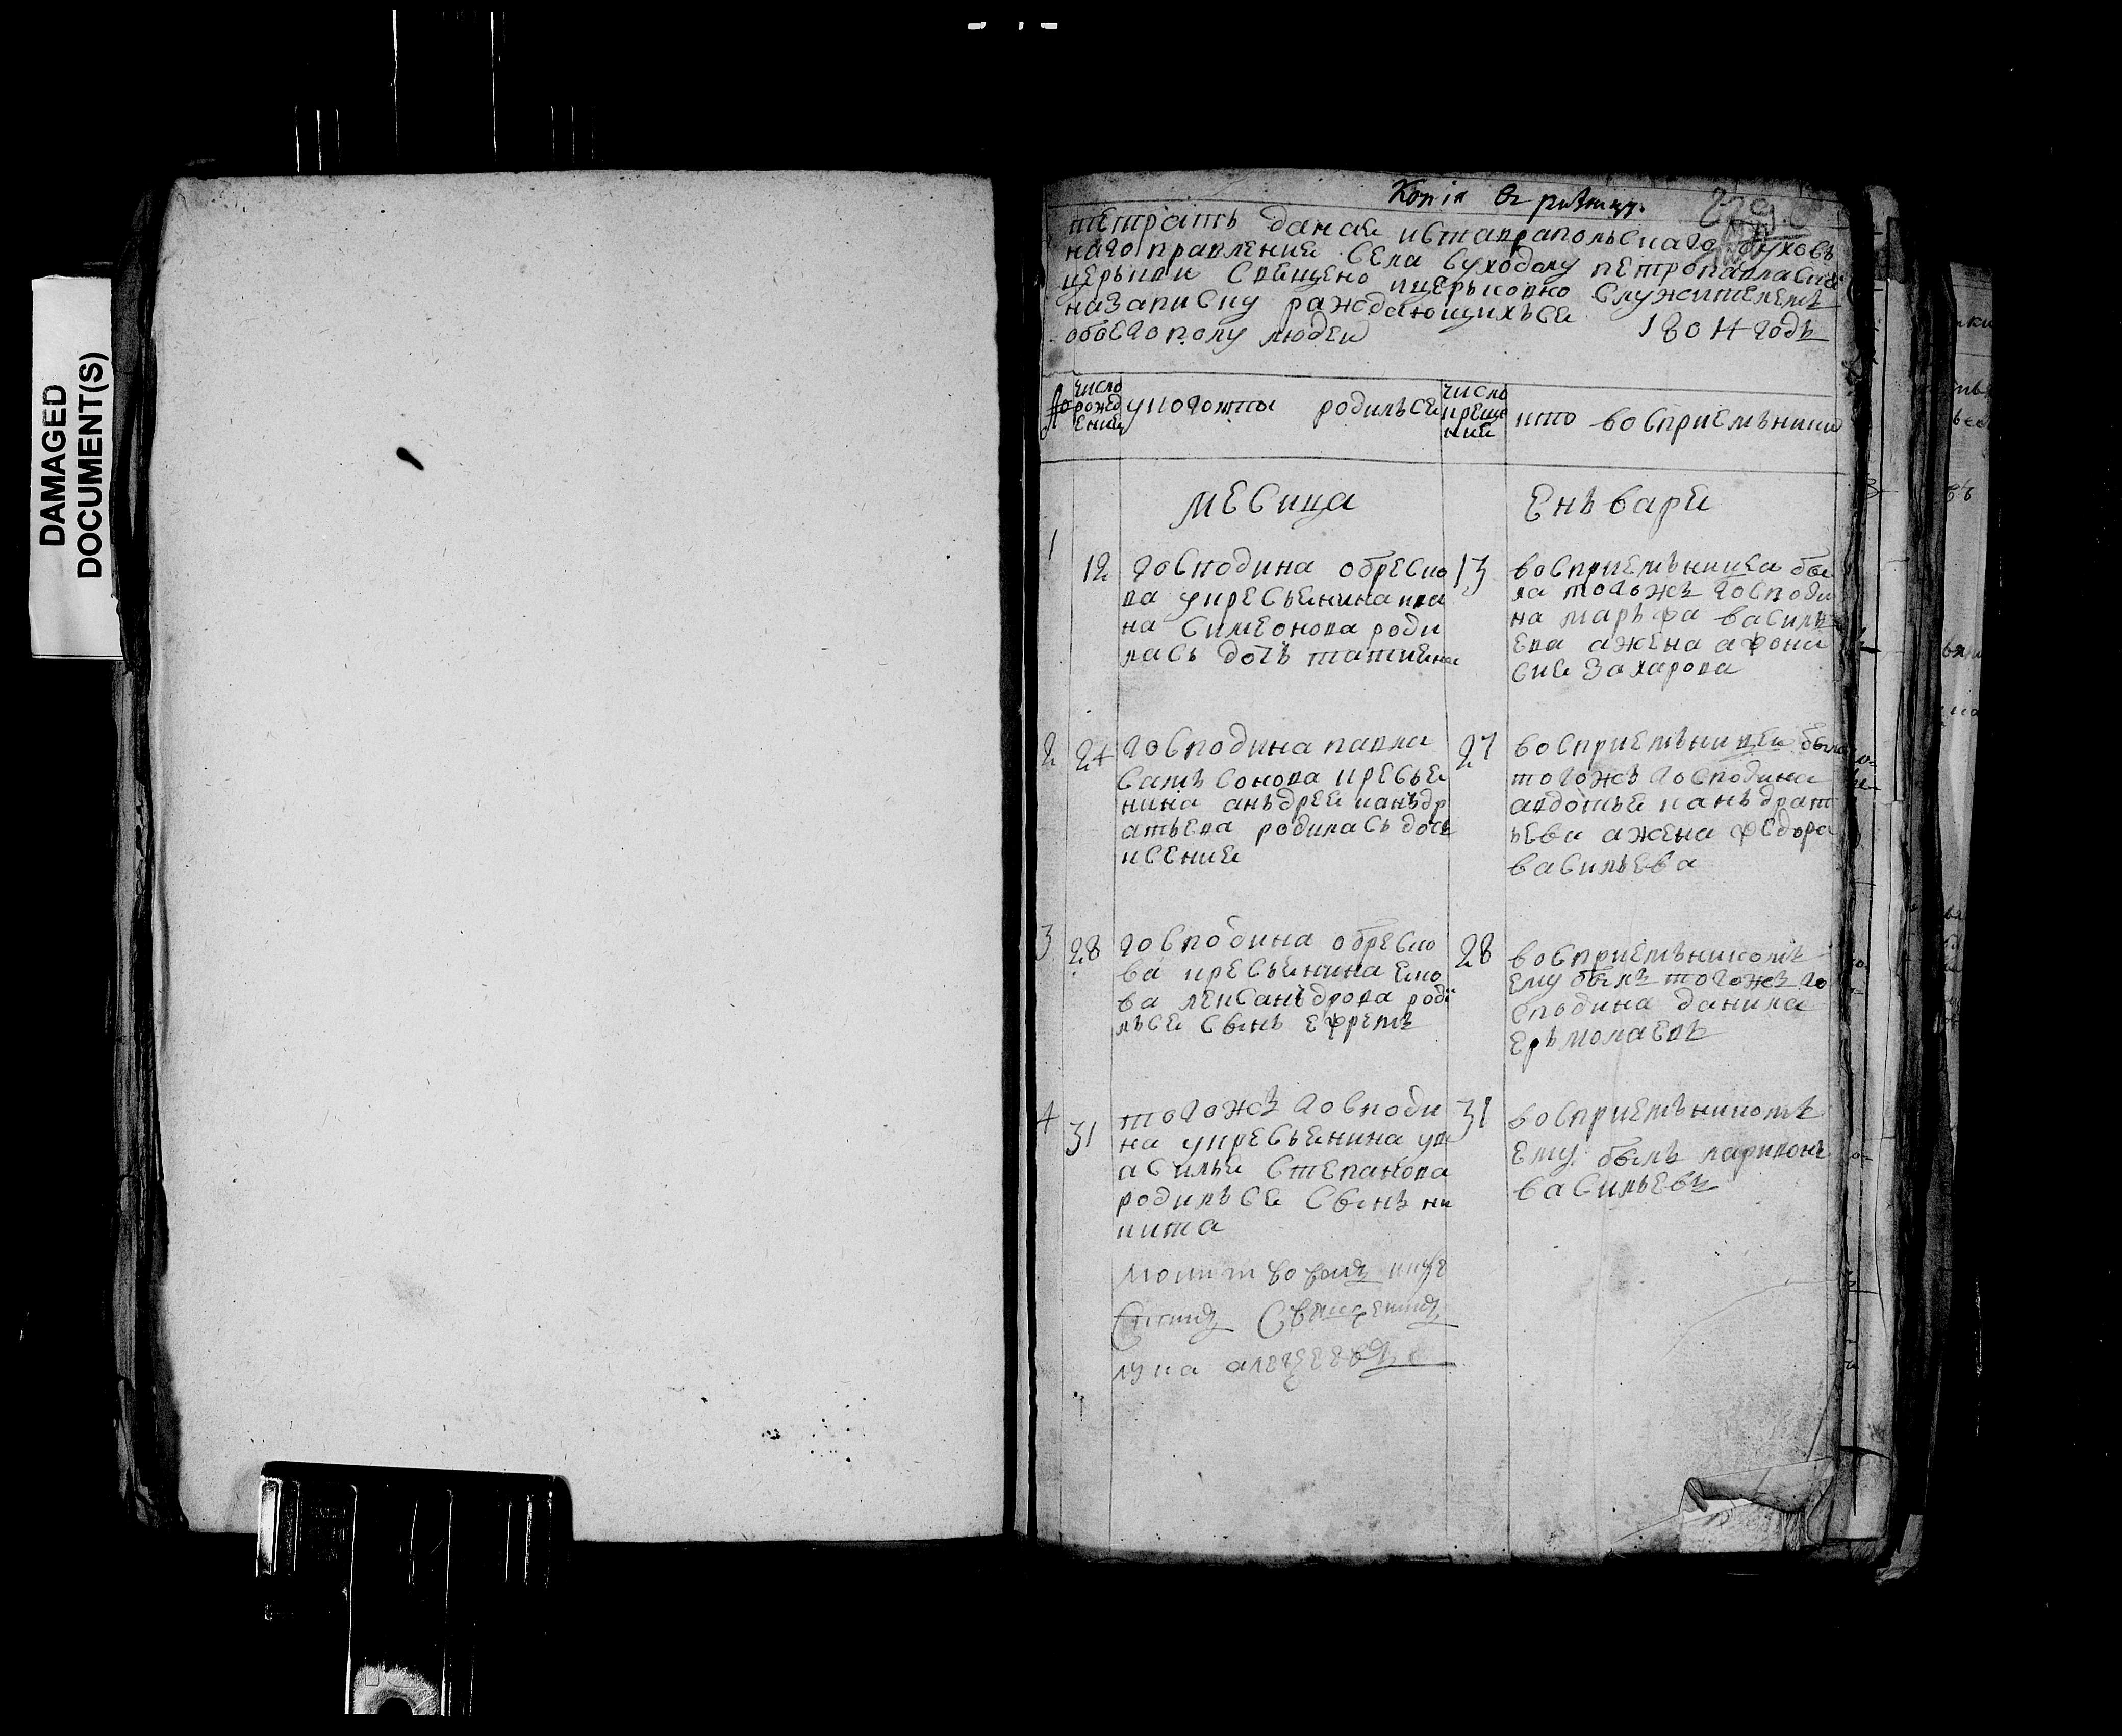 DAMAGED
DOCUMENT(S)
Копія
тетрать данае иставрапольскаго духовь
наго правление села Суходолу петропавласкае
церькви свещено ицерьковно служителемъ
назаписку раждающихъсе 1804 годъ
обоего полу людеи
№
число
рожед
ение
укогожто родилься
число
креще
ние
кто восприемьники
месица Еньваре
1 12 господина обреско
ва укресьенина ива
на симеонова роди
лась дочь татиена
13 восприемьницеи бы
ла тогожъ господи
на марьфа василь
ева ажена афона
сие Захарова
2 24 господина павла
самсонова кресье
нина аньдрее каньдр
атьева родилась дочь
ксение
27 восприемьницеи была
тогожъ господина
авдотье каньдрат
ьева ажена федора
васильева
3 28 господина обреско
ва кресьенина ено
ва лексаньдрова роди
лься сынъ ефремъ
28 восприемьникомъ
ему былъ тогожъ го
сподина данила
ерьмолаевъ
4 31 тогожъ господи
на укресьенина ув
асилье степанова
родилься сынъ ни
кита
31 восприемьникомъ
ему былъ ларивонъ
васильевъ
молитвовалъ икре
стилъ священникъ
лука алексеевъ